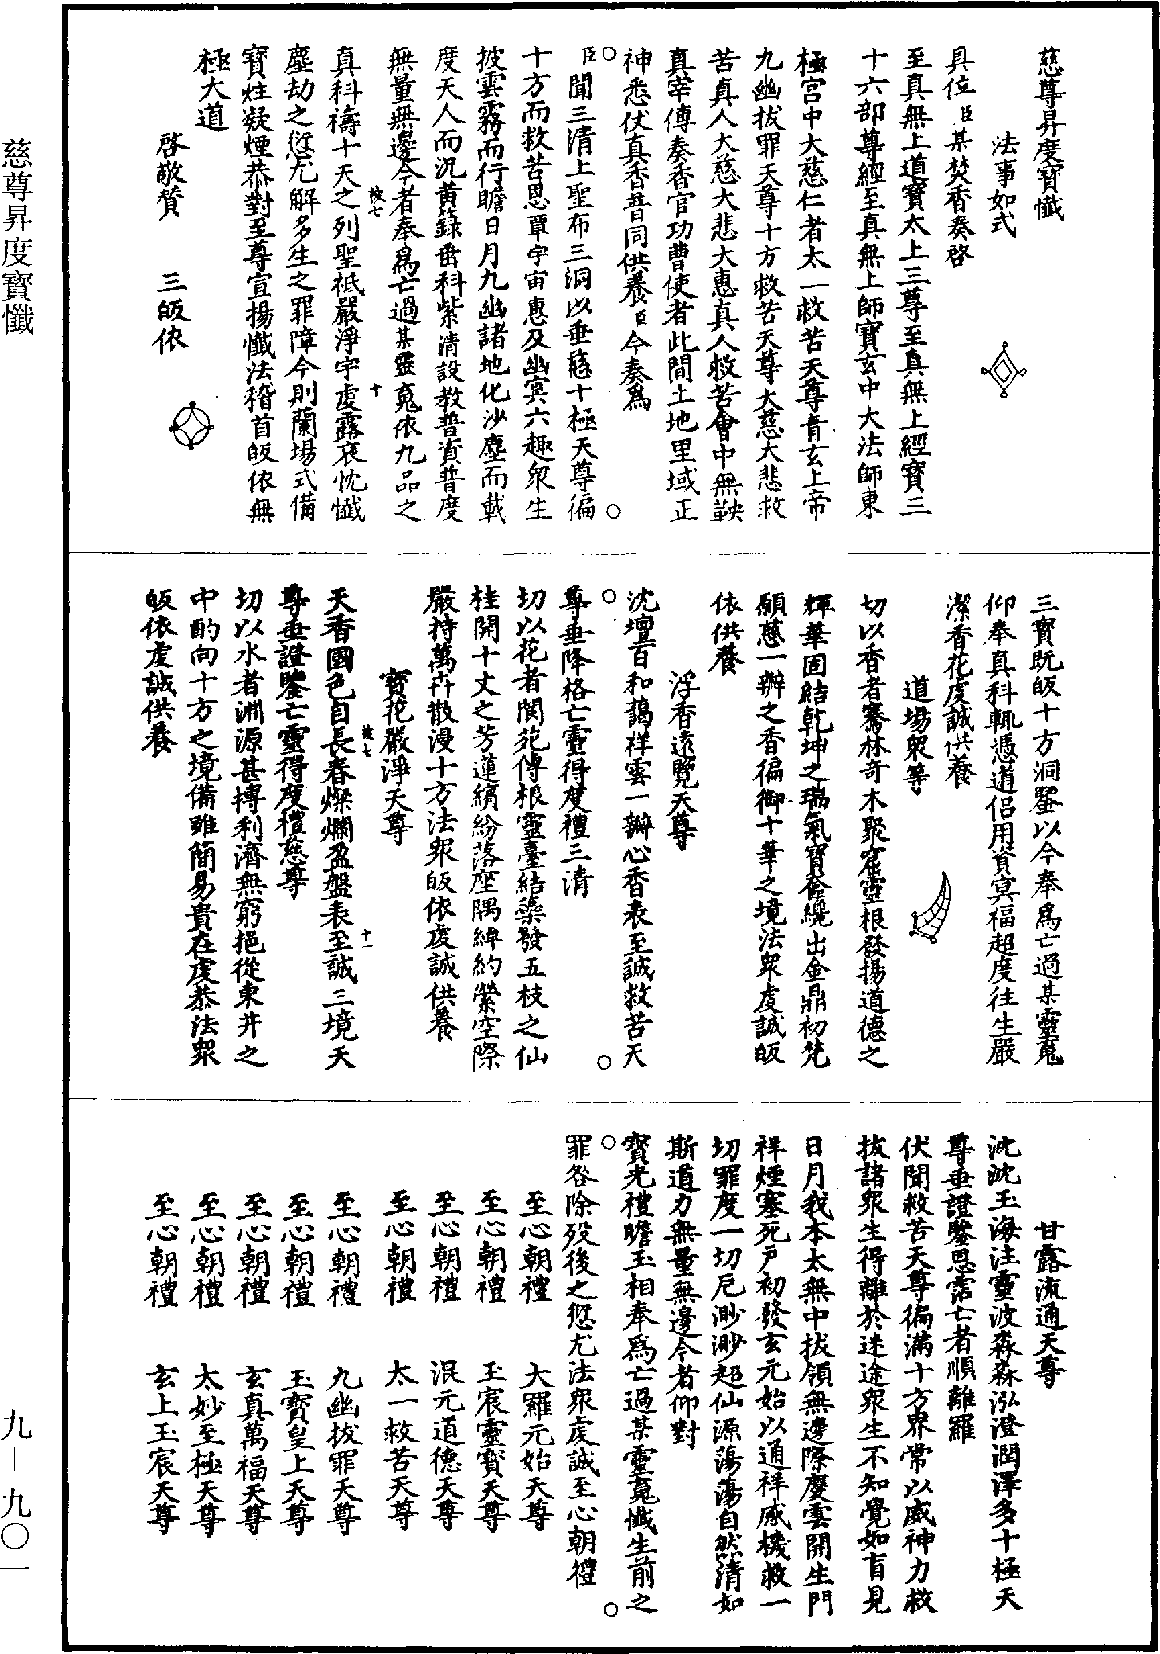 慈尊昇度寶懺
法事如式
具位臣某焚香奏啓
至真無上道寶太上三尊至真無上經寶三
十六部尊經至真無上師寶玄中大法師東
極宮中大慈仁者太一救苦天尊青玄上帝
九幽拔罪天尊十方救苦天尊大慈大悲救
苦真人大慈大悲大惠真人救苦會中無鞅
真宰傳奏香官功曹使者此間土地里域正
神悉伏真香普同供養臣今奏為
臣聞三清上聖布三洞以垂慈十極天尊徧
十方而救苦恩覃宇宙惠及幽冥六趣眾生
披雲霧而行瞻日月九幽諸地化沙塵而載
度天人而沉黃籙垂科紫清設教普資普度
無量無邊今者奉為亡過某靈䰟依九品之
真科禱十天之列聖祗嚴淨宇虔露哀忱懺
塵劫之愆尤解多生之罪障今則蘭場式備
寶炷凝煙恭對至尊宣揚懺法稽首皈依無
極大道
啓敬贊 三皈依
三寶既皈十方洞鑒以今奉為亡過某靈䰟
仰奉真科輒憑道侶用資冥福超度往生嚴
潔香花虔誠供養
道場眾等
切以香者騫林奇木聚窟靈根發揚道德之
輝華固結乾坤之瑞氣寶奩纔出金鼎初焚
願慈一瓣之香徧御十華之境法眾虔誠皈
依供養
浮香遠覽天尊
沈壇百和藹祥雲一瓣心香表至誠救苦天
尊垂降格亡靈得度禮三清
切以花者閬苑傳根靈臺結蘂發五枝之仙
桂開十丈之芳蓮繽紛落座隅綽約縈空際
嚴持萬卉散漫十方法眾皈依虔誠供養
寶花嚴淨天尊
天香國色自長春燦爛盈盤表至誠三境天
尊垂證鑒亡靈得度禮慈尊
切以水者淵源甚摶利濟無窮挹從東井之
中酌向十方之境備雖簡易貴在虔恭法眾
皈依虔誠供養
甘露流通天尊
沈沈玉海注靈波淼淼泓澄潤澤多十極天
尊垂證鑒恩霑亡者順離羅
伏聞救苦天尊徧滿十方界常以威神力救
拔諸眾生得離於迷途眾生不知覺如盲見
日月我本太無中拔領無邊際慶雲開生門
祥煙塞死戶初發玄元始以通祥感機救一
切罪度一切厄渺渺超仙源蕩蕩自然清如
斯道力無量無邊今者仰對
寶光禮瞻玉相奉為亡過某靈䰟懺生前之
罪咎除歿後之愆尤法眾虔誠至心朝禮
至心朝禮 大羅元始天尊
至心朝禮 玉宸靈寶天尊
至心朝禮 混元道德天尊
至心朝禮 太一救苦天尊
至心朝禮 九幽拔罪天尊
至心朝禮 玉寶皇上天尊
至心朝禮 玄真萬福天尊
至心朝禮 太妙至極天尊
至心朝禮 玄上玉宸天尊
慈尊昇度寶懺
九－九〇一